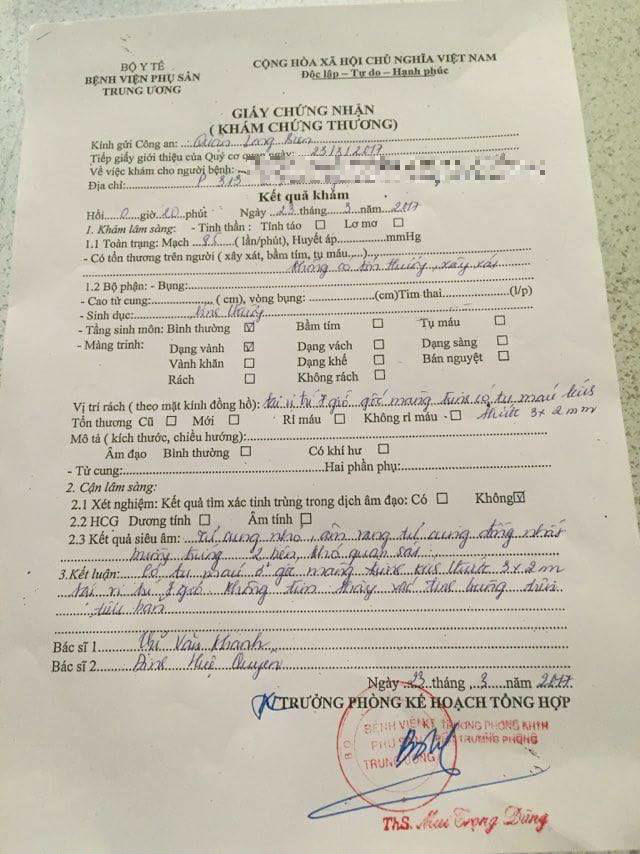 BỘ Y TẾ
BỆNH VIỆN PHỤ SẢN
TRUNG ƯƠNG
CỘNG HÒA XÃ HỘI CHỦ NGHĨA VIỆT NAM
Độc lập – Tự do – Hạnh phúc
GIẤY CHỨNG NHẬN
( KHÁM CHỨNG THƯƠNG)
Kính gửi Công an: Quận Long Biên
Tiếp giấy giới thiệu của Quý cơ quan ngày: 23/3/2017
Về việc khám cho người bệnh:
Địa chỉ: P 313
Kết quả khám
Hồi 0 giờ 20 phút Ngày 23 tháng 3 năm 2017
1. Khám lâm sàng: - Tinh thần: Tỉnh táo Lơ mơ
1.1 Toàn trạng: Mạch 85 ( lần/phút), Huyết áp mmHg
- Có tổn thương trên người ( xây xát, bầm tím, tụ máu,...)
không có tổn thương, xây xát
1.2 Bộ phận: - Bụng:
- Cao tử cung: ( cm), vòng bụng: (cm)Tim thai (l/p)
- Sinh dục:
- Tầng sinh môn: Bình thường Bầm tím Tụ máu
- Màng trinh: Dạng vành Dạng vách Dạng sàng
Vành khăn Dạng khế Bán nguyệt
Rách Không rách
Vị trí rách ( theo mặt kính đồng hồ): tại vị trí 7 giờ gốc màng trinh có tụ máu kích
Tổn thương Cũ Mới Rỉ máu Không rỉ máu - thước 3x2mm
Mô tả ( kích thước, chiều hướng):
Âm đạo Bình thường Có khí hư
- Tử cung: Hai phần phụ:
2. Cận lâm sàng:
2.1 Xét nghiệm: Kết quả tìm xác tinh trùng trong dịch âm đạo: Có Không
2.2 HCG Dương tính Âm tính
2.3 Kết quả siêu âm: Tử cung nhỏ, âm vang tử cung đồng nhất
buồng trứng 2 bên khó quan sát
3.Kết luận: Có tụ máu ở gốc màng trinh kích thước 3x2m
tại vị trí 7 giờ không tìm thấy xác tinh trùng trên
tiêu bản
Bác sĩ 1 Vân Khanh
Bác sĩ 2 Quyên
Ngày 23 tháng 3 năm 2017
TRƯỞNG PHÒNG KẾ HOẠCH TỔNG HỢP
BỆNH VIỆN
PHỤ SẢN
TRUNG ƯƠNG
KT. TRƯỞNG PHÒNG KHTH
TRƯỞNG PHÒNG
ThS. Mai Trọng Dũng